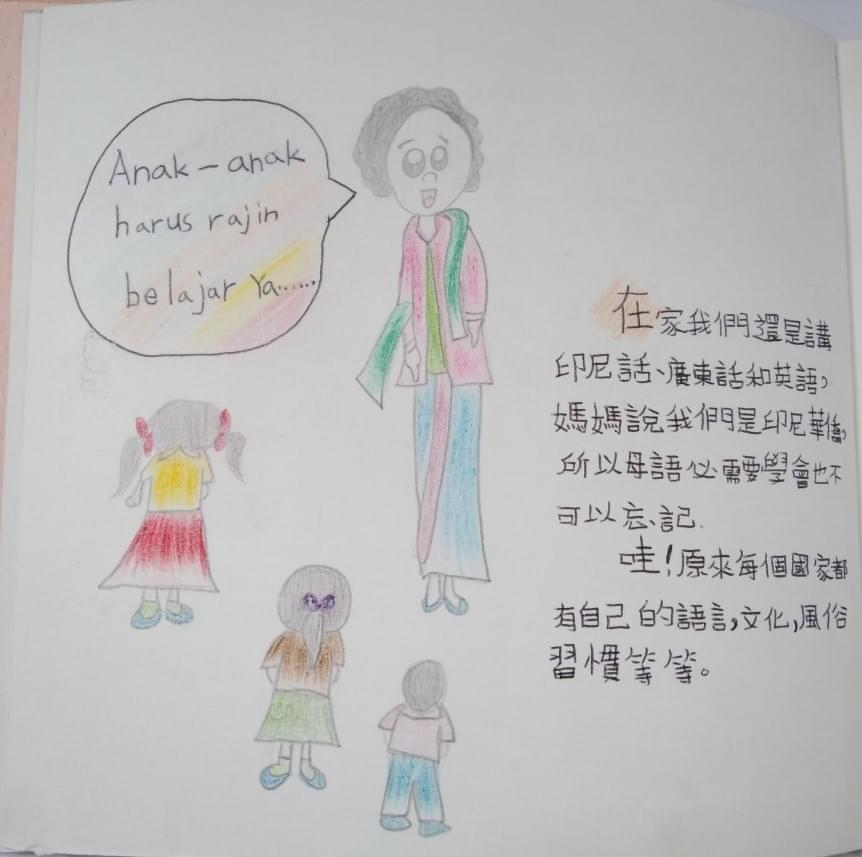 Anak-anak
harus rajin
belajar Ya......
在家我們還是講
印尼話、廣東話和英語,
媽媽說我們是印尼華僑,
所以母語必需要學會也不
可以忘記.
哇!原來每個國家都
有自己的語言,文化,風俗
習慣等等。